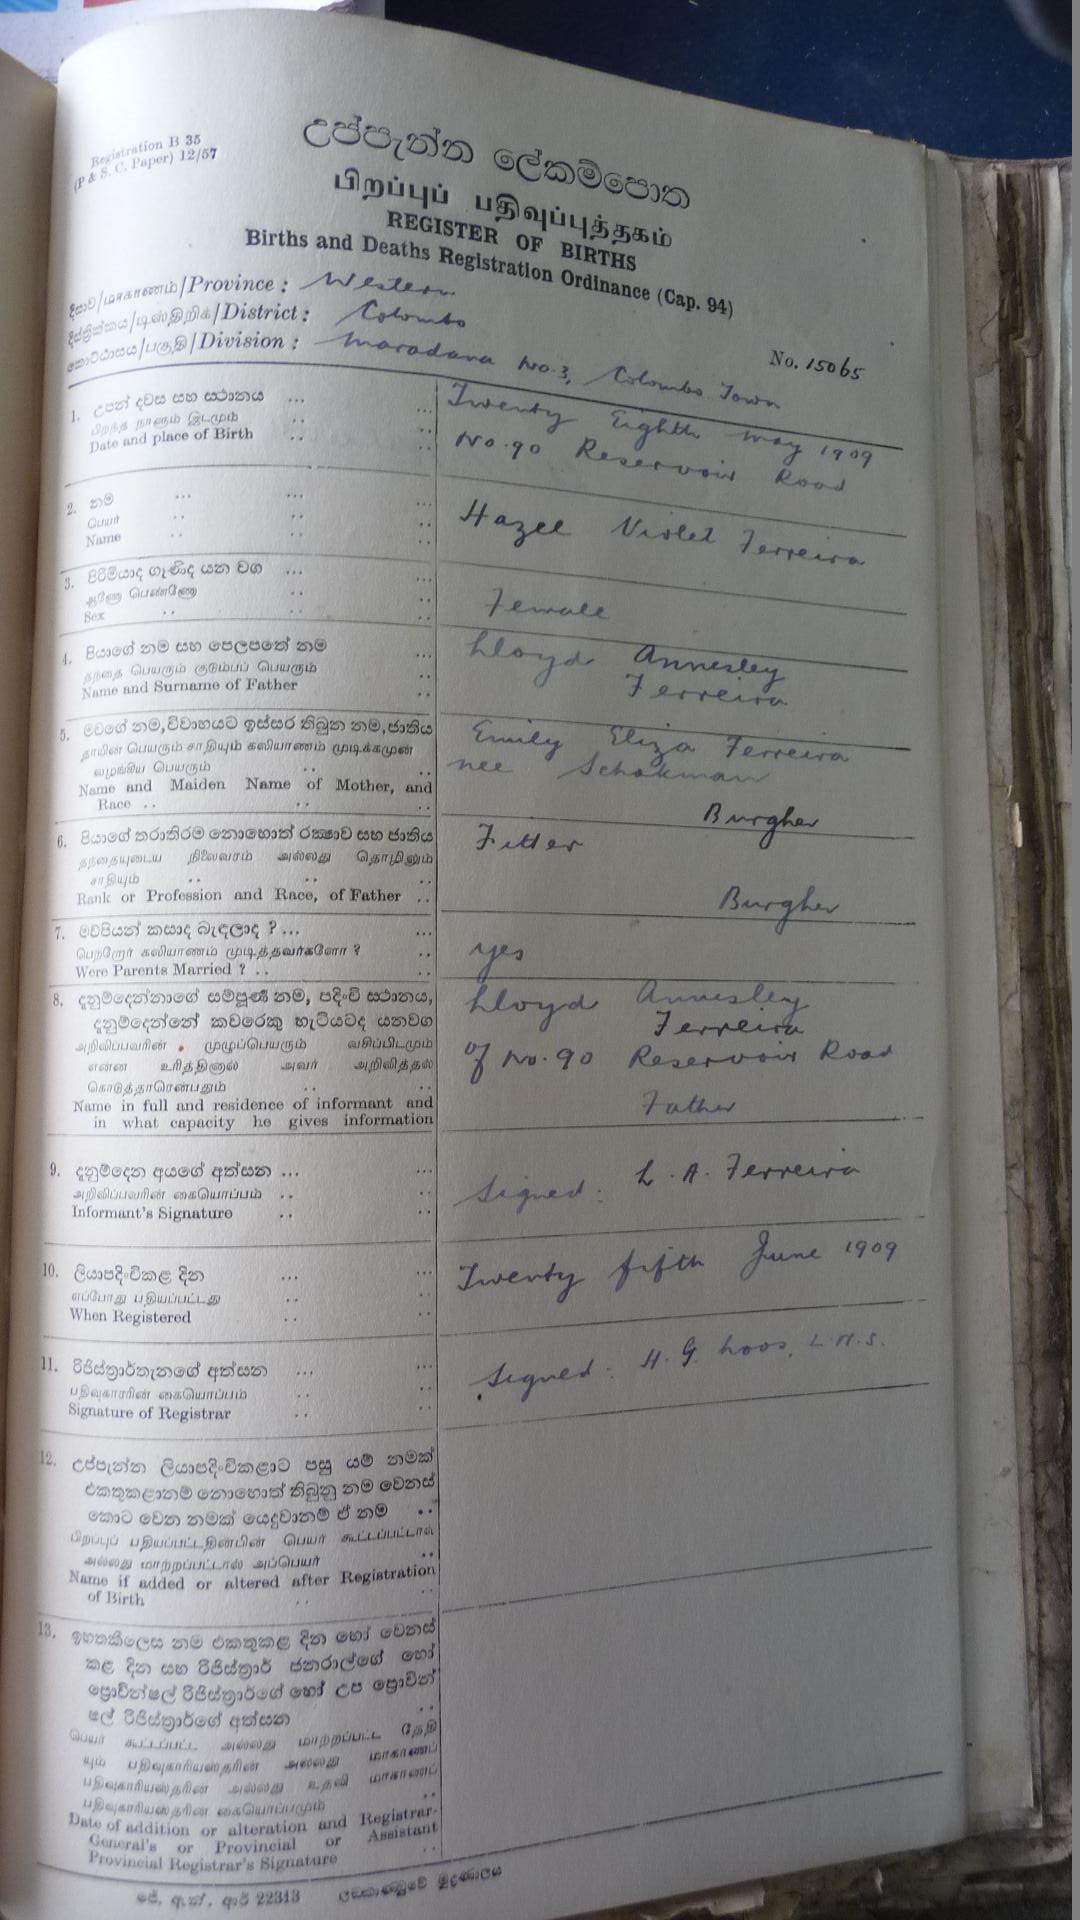 Registration B 35
(P & S. C. Paper) 12/57
උප්පැන්න ලේකම්පොත
பிறப்புப் பதிவுப்புத்தகம்
REGISTER OF BIRTHS
Births and Deaths Registration Ordinance (Cap. 94)
දිසාව/மாகாணம்/Province : Western
දිස්ත්‍රික්කය/டிஸ்திறிக்/District : Colombo
කොට්ඨාසය/பகுதி/Division : Maradana No. 3, Colombo Town
No. 15065
1. උපන් දවස සහ ස්ථානය ... ...
பிறந்த நாளும் இடமும் .. ..
Date and place of Birth .. ..
Twenty Eighth May 1909
No. 90 Reservoir Road
2. නම ... ... ...
பெயர் .. .. ..
Name .. .. ..
Hazel Violet Ferreira
3. පිරිමියාද ගැණිද යන වග ... ...
ஆணோ பெண்ணோ .. ..
Sex .. .. ..
Female
4. පියාගේ නම සහ පෙලපතේ නම ...
தந்தை பெயரும் குடும்பப் பெயரும் ..
Name and Surname of Father ..
Lloyd Annesley
Ferreira
5. මවගේ නම, විවාහයට ඉස්සර තිබුන නම, ජාතිය
தாயின் பெயரும் சாதியும் கலியாணம் முடிக்கமுன்
வழங்கிய பெயரும் .. ..
Name and Maiden Name of Mother, and
Race .. .. ..
Emily Eliza Ferreira
nee Schokman
Burgher
6. පියාගේ තරාතිරම නොහොත් රක්‍ෂාව සහ ජාතිය
தந்தையுடைய நிலைவரம் அல்லது தொழிலும்
சாதியும் .. .. ..
Rank or Profession and Race, of Father ..
Fitter
Burgher
7. මව්පියන් කසාද බැඳලාද ? ... ...
பெற்றோர் கலியாணம் முடித்தவர்களோ ? ..
Were Parents Married ? .. ..
yes
8. දැනුම්දෙන්නාගේ සම්පූර්ණ නම, පදිංචි ස්ථානය,
දැනුම්දෙන්නේ කවරෙකු හැටියටද යනවග
அறிவிப்பவரின் முழுப்பெயரும் வசிப்பிடமும்
என்ன உரித்தினால் அவர் அறிவித்தல்
கொடுத்தாரென்பதும் .. ..
Name in full and residence of informant and
in what capacity he gives information
Lloyd Annesley
Ferreira
of No. 90 Reservoir Road
Father
9. දැනුම්දෙන අයගේ අත්සන ... ...
அறிவிப்பவரின் கையொப்பம் .. ..
Informant's Signature .. ..
Signed : L. A. Ferreira
10. ලියාපදිංචිකළ දින ... ...
எப்போது பதியப்பட்டது .. ..
When Registered .. ..
Twenty fifth June 1909
11. රිජිස්ත්‍රාර්තැනගේ අත්සන ... ...
பதிவுகாரரின் கையொப்பம் .. ..
Signature of Registrar .. ..
Signed : H. G. Loos, L.M.S.
12. උප්පැන්න ලියාපදිංචිකළාට පසු යම් නමක්
එකතුකළානම් නොහොත් තිබුනු නම වෙනස්
කොට වෙන නමක් යෙදුවානම් ඒ නම ..
பிறப்புப் பதியப்பட்டதின்பின் பெயர் கூட்டப்பட்டால்
அல்லது மாற்றப்பட்டால் அப்பெயர் ..
Name if added or altered after Registration
of Birth .. ..
13. ඉහතකීලෙස නම එකතුකළ දින හෝ වෙනස්
කළ දින සහ රිජිස්ත්‍රාර් ජනරාල්ගේ හෝ
ප්‍රොවින්ෂල් රිජිස්ත්‍රාර්ගේ හෝ උප ප්‍රොවින්
ෂල් රිජිස්ත්‍රාර්ගේ අත්සන ..
பெயர் கூட்டப்பட்ட அல்லது மாற்றப்பட்ட தேதி
யும் பதிவுகாரியஸ்தரின் அல்லது மாகாணப்
பதிவுகாரியஸ்தரின் அல்லது உதவி மாகாணப்
பதிவுகாரியஸ்தரின் கையொப்பமும் ..
Date of addition or alteration and Registrar-
General's or Provincial or Assistant
Provincial Registrar's Signature ..
ජේ. ඇන්. ආර් 22313 ලංකාණ්ඩුවේ මුද්‍රණාලය